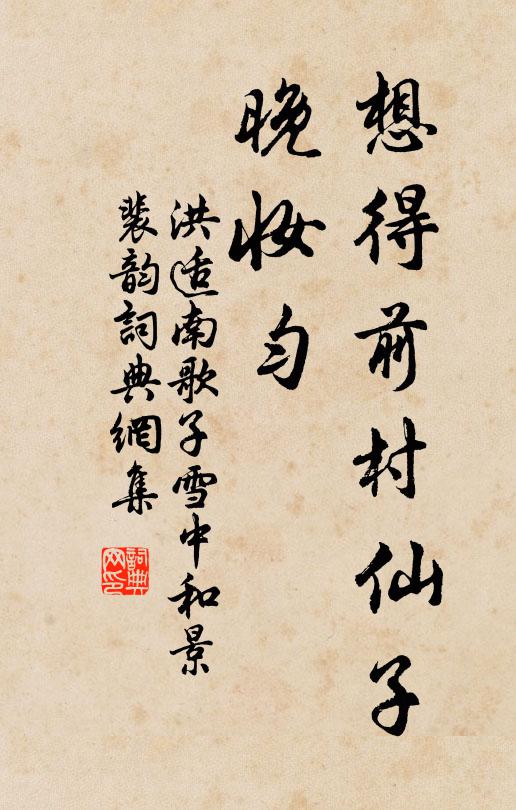 想得前村仙子
晚妆匀
洪适南歌子雪中和景
裴韵詞典網集
詞典网印